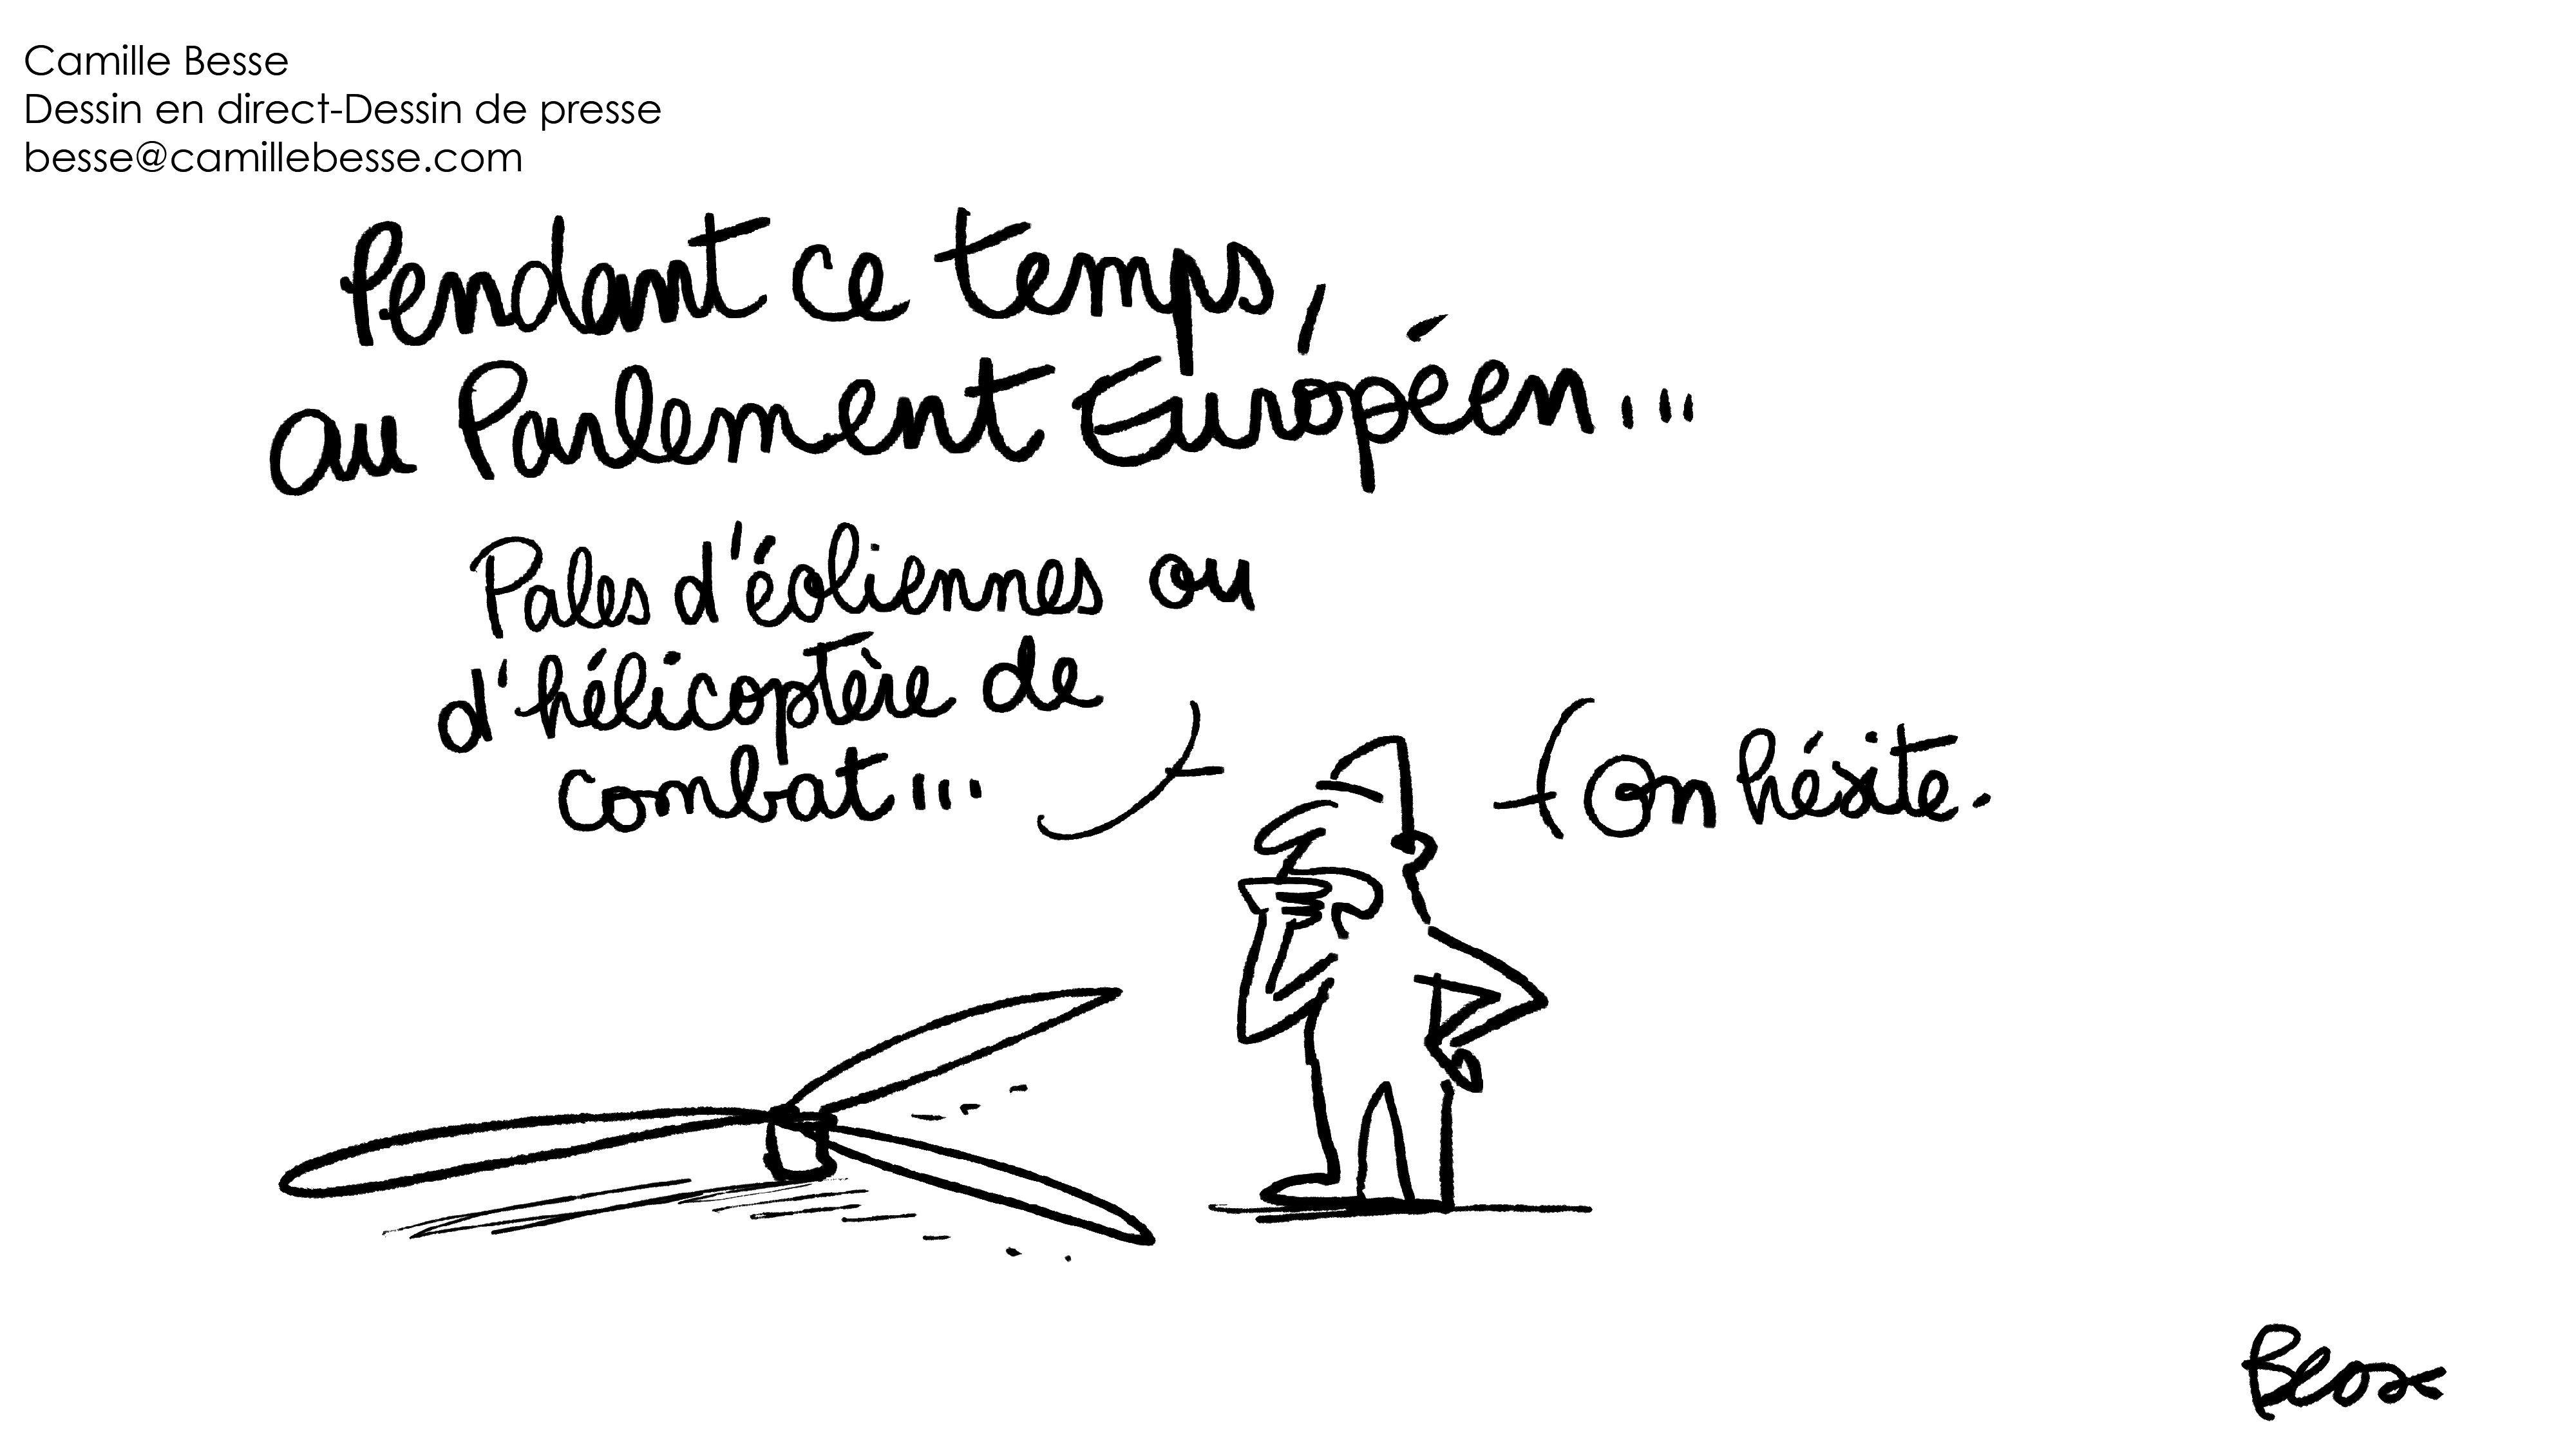 Camille Besse
Dessin en direct-Dessin de presse
besse@camillebesse.com
Pendant ce temps,
au Parlement Européen...
Pales d'éoliennes ou
d'hélicoptère de
combat...
On hésite.
Besse